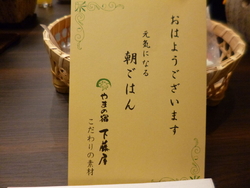 おはようございます
元気になる
朝ごはん
やまの宿 下藤屋
こだわりの素材